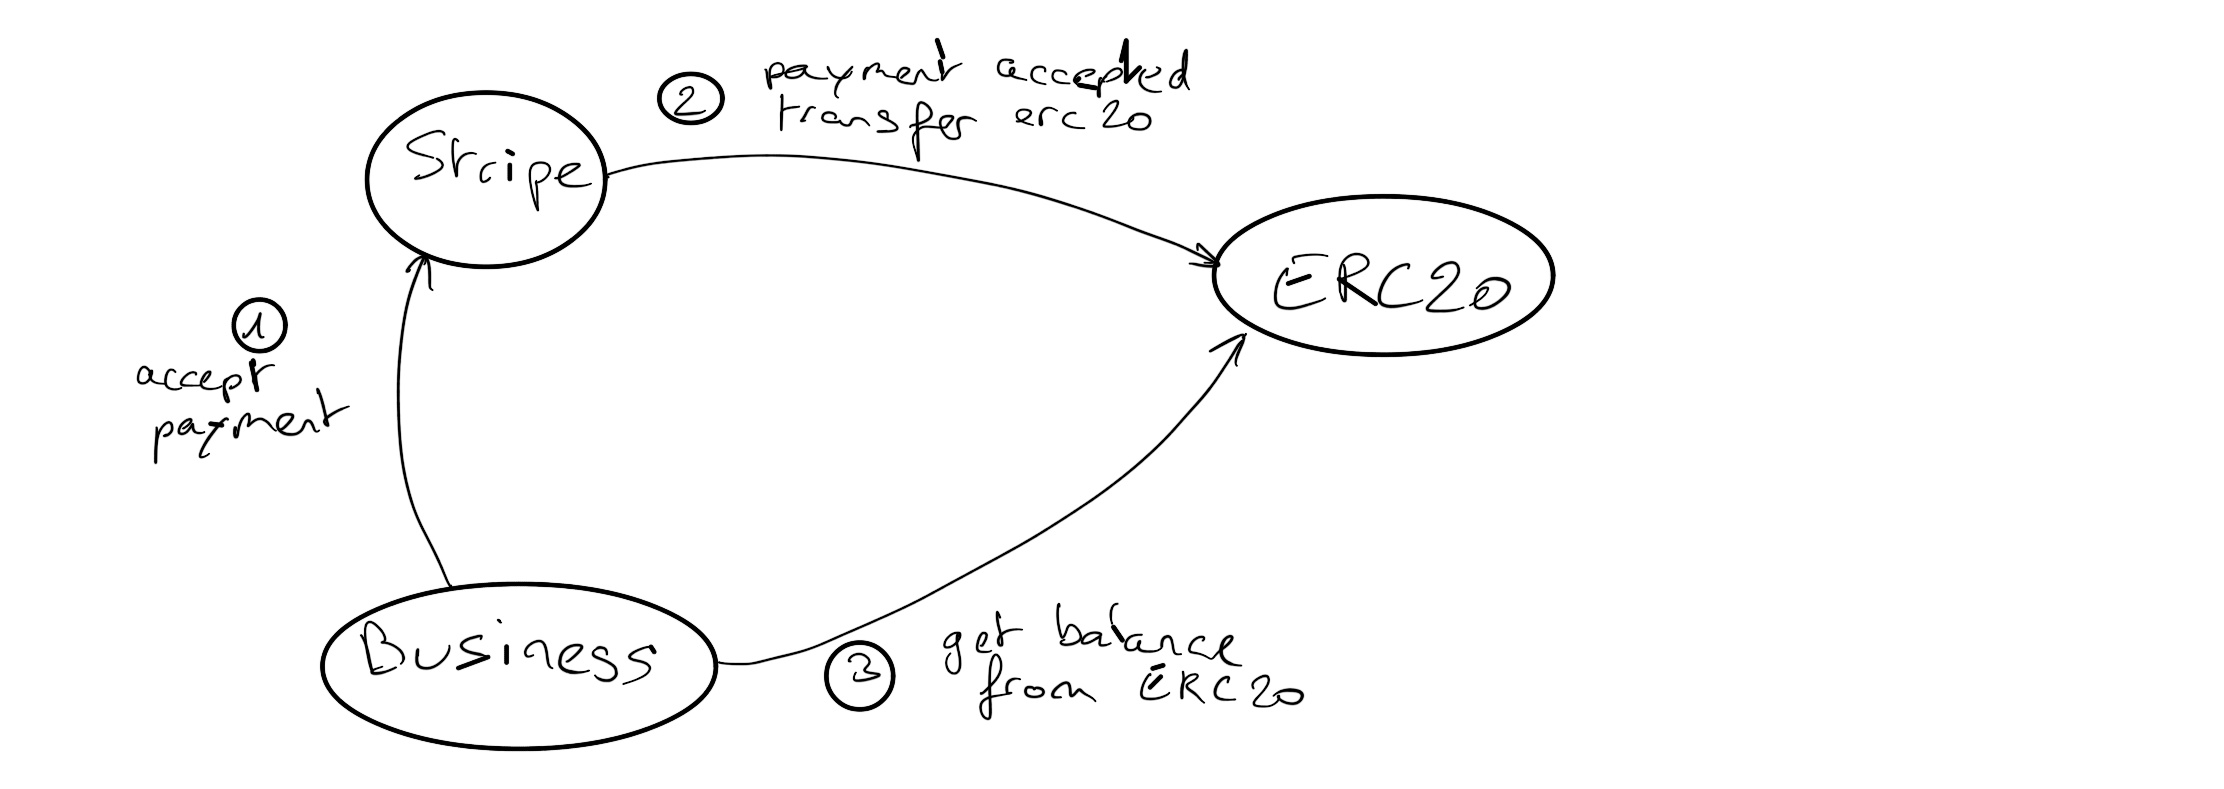 2
payment accepted
transfer erc20
Stripe
ERC20
1
accept
payment
Business
3
get balance
from ERC20